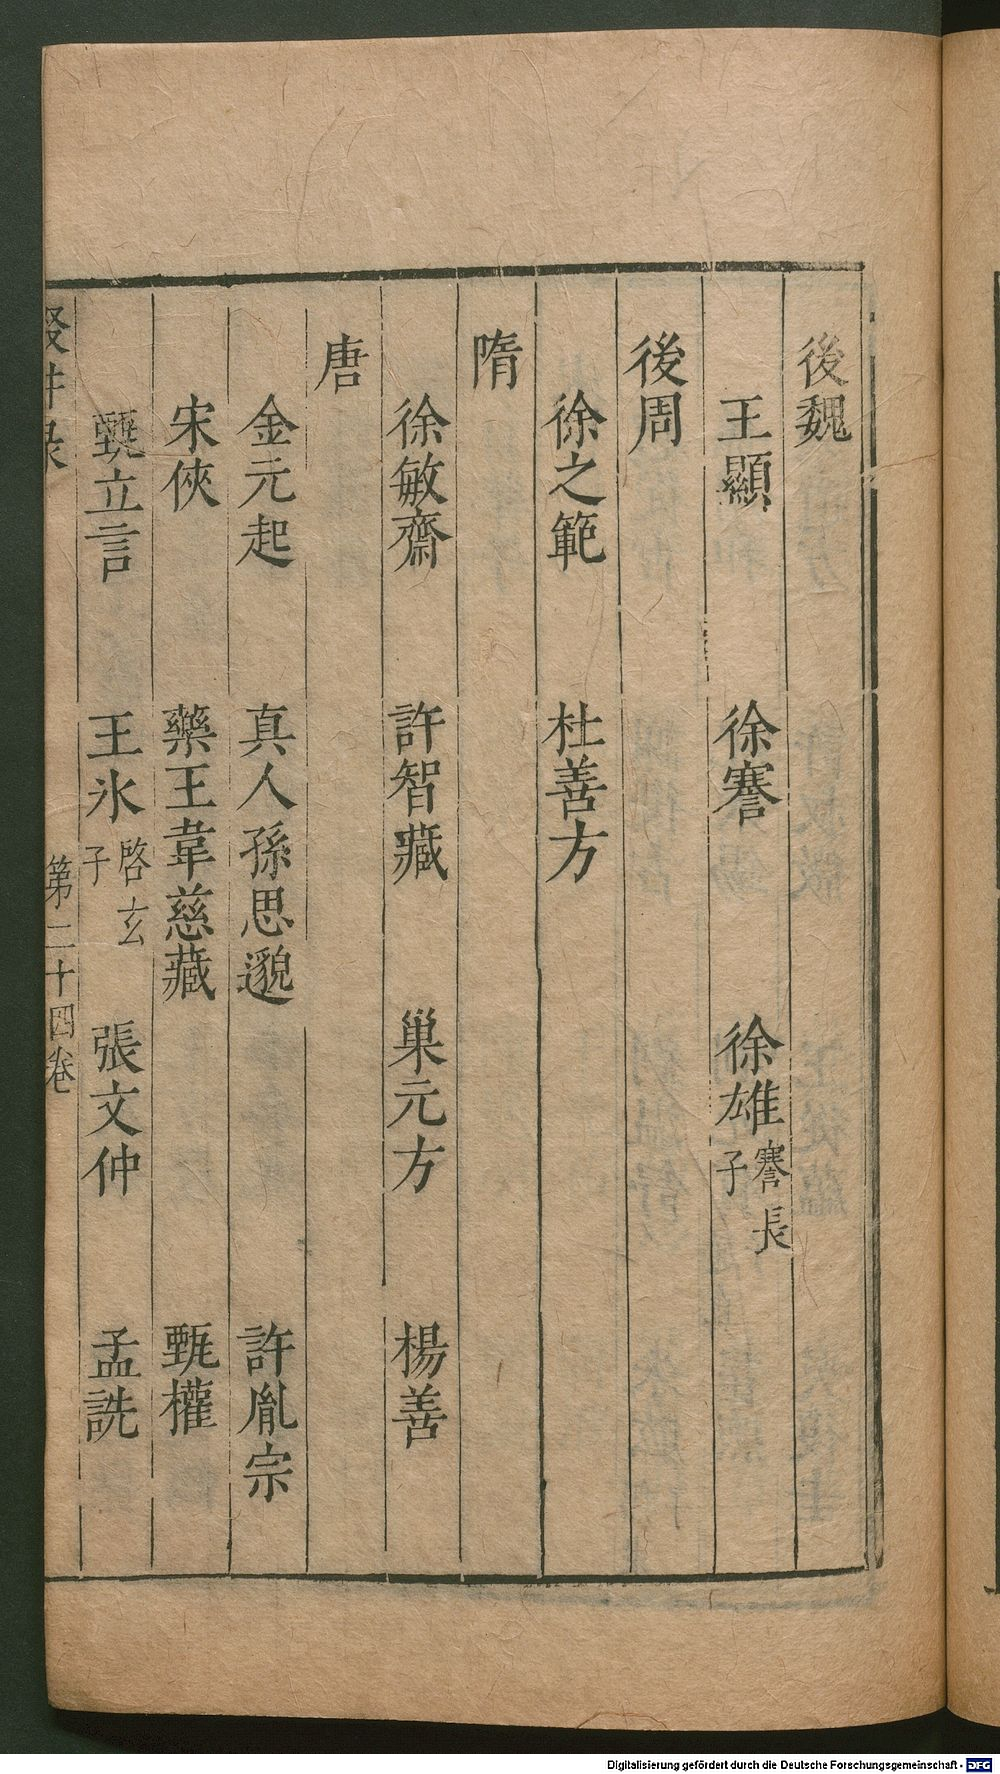 後魏
王顯　徐謇　徐雄謇長子
後周
徐之範　杜善方
隋
徐敏齋　許智藏　巢元方　楊善
唐
金元起　真人孫思邈　許胤宗
宋俠　藥王韋慈藏　甄權
甄立言　王氷啓玄子　張文仲　孟詵
第二十四卷
Digitalisierung gefördert durch die Deutsche Forschungsgemeinschaft - DFG